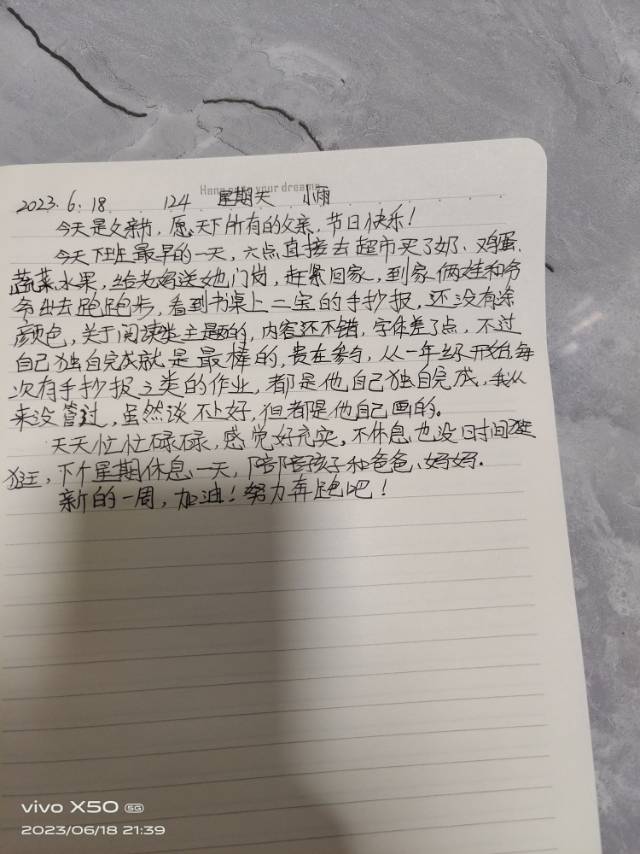 Have your dreams
2023.6.18 124 星期天 小雨
今天是父亲节，愿天下所有的父亲，节日快乐！
今天下班最早的一天，六点直接去超市买了奶、鸡蛋、
蔬菜水果，给老妈送她门岗，赶紧回家，到家俩娃和爷
爷出去跑跑步，看到书桌上二宝的手抄报，还没有涂
颜色，关于阅读类主题的，内容还不错，字体差了点，不过
自己独自完成就是最棒的，贵在参与，从一年级开始每
次有手抄报之类的作业，都是他自己独自完成，我从
来没管过，虽然谈不上好，但都是他自己画的。
天天忙忙碌碌，感觉好充实，不休息也没时间逛
逛，下个星期休息一天，陪陪孩子和爸爸、妈妈.
新的一周，加油！努力奔跑吧！
vivo X50 5G
2023/06/18 21:39